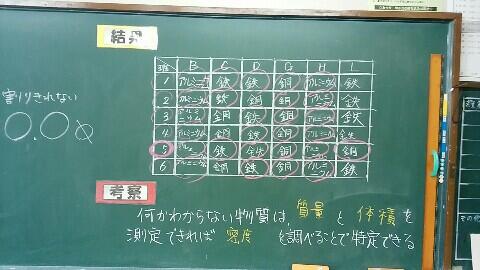 結果
割りきれない
班 B C D G H L
1 アルミニウム 鉄 鉄 銅 アルミニウム 鉄
2 アルミニウム 鉄 銅 銅 アルミニウム 鉄
3 アルミニウム 銅 鉄 銅 アルミニウム 鉄
4 アルミニウム 銅 鉄 銅 アルミニウム 鉄
5 アルミニウム 鉄 鉄 銅 アルミニウム 銅
6 アルミニウム 鉄 鉄 銅 アルミニウム 鉄
考察
何かわからない物質は、質量と体積を
測定できれば密度を調べることで特定できる